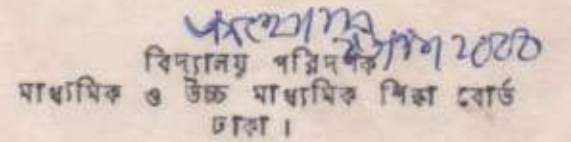 বিদ্যালয় পরিদর্শক
মাধ্যমিক ও উচ্চ মাধ্যমিক শিক্ষা বোর্ড
ঢাকা।